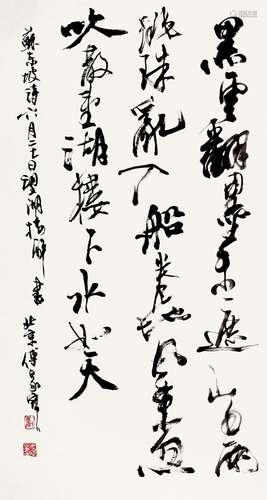 黑雲翻墨未遮山白雨
跳珠亂入船卷地風來忽
吹散望湖樓下水如天
蘇東坡詩六月二十七日望湖樓醉書 北京傅家寶